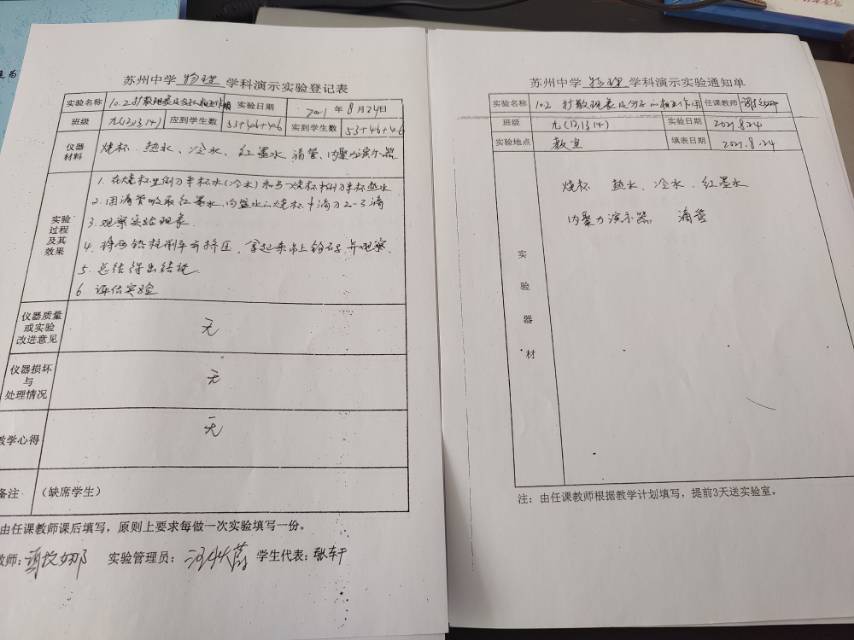 苏州中学 物理 学科演示实验登记表
实验名称 10.2 扩散现象及分子 相互作用 实验日期 2021年8月24日
班级 九(1)(3)(4) 应到学生数 53+46+46 实到学生数 53+46+46
仪器材料 烧杯、热水、冷水、红墨水、滴管、内聚力演示器
实验过程及其效果
1. 在烧杯里倒入半杯水(冷水)和另一烧杯倒入半杯热水
2. 用滴管吸取红墨水,向盛水的烧杯中滴入2-3滴
3. 观察实验现象
4. 将两铅柱 挤压,拿起来 并观察
5. 总结得出结论
6. 评估实验
仪器质量或实验改进意见 无
仪器损坏与处理情况 无
教学心得 无
备注 (缺席学生)
由任课教师课后填写,原则上要求每做一次实验填写一份。
教师: 实验管理员: 学生代表:
苏州中学 物理 学科演示实验通知单
实验名称 10.2 扩散现象及分子的相互作用 任课教师
班级 九(1)(3)(4) 实验日期 2021.8.24
实验地点 教室 填表日期 2021.8.24
实验器材
烧杯 热水、冷水、红墨水
内聚力演示器 滴管
注:由任课教师根据教学计划填写,提前3天送实验室。